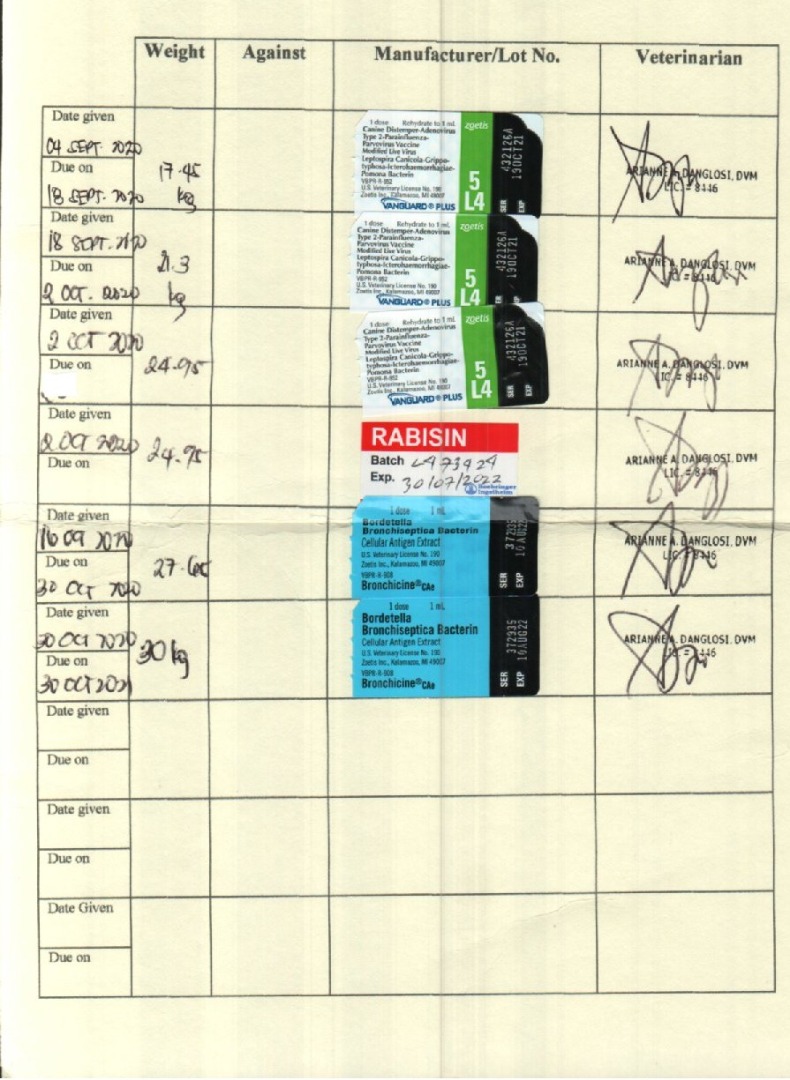 Weight Against Manufacturer/Lot No. Veterinarian
Date given
04 SEPT. 2020
Due on
18 SEPT. 2020
17.45
kg
1 dose Rehydrate to 1 mL
Canine Distemper-Adenovirus
Type 2-Parainfluenza-
Parvovirus Vaccine
Modified Live Virus
Leptospira Canicola-Grippo-
typhosa-Icterohaemorrhagiae-
Pomona Bacterin
VBPR-R-952
U.S. Veterinary License No. 190
Zoetis Inc., Kalamazoo, MI 49007
VANGUARD® PLUS
zoetis
5
L4
SER 432126A
EXP 19OCT21
ARIANNE A. DANGLOSI, DVM
LIC. # 8446
Date given
18 SEPT. 2020
Due on
2 OCT. 2020
21.3
kg
1 dose Rehydrate to 1 mL
Canine Distemper-Adenovirus
Type 2-Parainfluenza-
Parvovirus Vaccine
Modified Live Virus
Leptospira Canicola-Grippo-
typhosa-Icterohaemorrhagiae-
Pomona Bacterin
VBPR-R-952
U.S. Veterinary License No. 190
Zoetis Inc., Kalamazoo, MI 49007
VANGUARD® PLUS
zoetis
5
L4
SER 432126A
EXP 19OCT21
ARIANNE A. DANGLOSI, DVM
LIC. # 8446
Date given
2 OCT 2020
Due on
24.95
1 dose Rehydrate to 1 mL
Canine Distemper-Adenovirus
Type 2-Parainfluenza-
Parvovirus Vaccine
Modified Live Virus
Leptospira Canicola-Grippo-
typhosa-Icterohaemorrhagiae-
Pomona Bacterin
VBPR-R-952
U.S. Veterinary License No. 190
Zoetis Inc., Kalamazoo, MI 49007
VANGUARD® PLUS
zoetis
5
L4
SER 432126A
EXP 19OCT21
ARIANNE A. DANGLOSI, DVM
LIC. # 8446
Date given
2 OCT 2020
Due on
24.95
RABISIN
Batch L473924
Exp. 30/07/2022
Boehringer
Ingelheim
ARIANNE A. DANGLOSI, DVM
LIC. # 8446
Date given
16 OCT 2020
Due on
30 OCT 2020
1 dose 1 mL
Bordetella
Bronchiseptica Bacterin
Cellular Antigen Extract
U.S. Veterinary License No. 190
Zoetis Inc., Kalamazoo, MI 49007
VBPR-R-908
Bronchicine®CAe
SER 372935
EXP 16AUG22
ARIANNE A. DANGLOSI, DVM
LIC. # 8446
Date given
30 OCT 2020
Due on
30 OCT 2021
30 kg
1 dose 1 mL
Bordetella
Bronchiseptica Bacterin
Cellular Antigen Extract
U.S. Veterinary License No. 190
Zoetis Inc., Kalamazoo, MI 49007
VBPR-R-908
Bronchicine®CAe
SER 372935
EXP 16AUG22
ARIANNE A. DANGLOSI, DVM
LIC. # 8446
Date given
Due on
Date given
Due on
Date Given
Due on